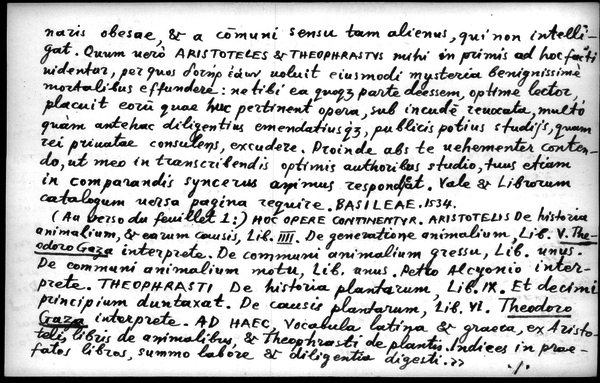 naris obesae, & a cōmuni sensu tam alienus, qui non intelli-
gat. Quum uerò ARISTOTELES & THEOPHRASTVS mihi in primis ad hoc facti
uidentur, per quos uoluit eiusmodi mysteria benignissimè
mortalibus effundere: ne tibi ea quoqȝ parte deessem, optime lector,
placuit eorū quae huc pertinent opera, sub incudē reuocata, multò
quàm antehac diligentius emendatiusqȝ, publicis potius studijs, quam
rei priuatae consulens, excudere. Proinde abs te uehementer conten-
do, ut meo in transcribendis optimis authoribus studio, tuus etiam
in comparandis syncerus animus respondeat. Vale & Librorum
catalogum uersa pagina require. BASILEAE. 1534.
(Au verso du feuillet 1:) HOC OPERE CONTINENTVR. ARISTOTELIS De historia
animalium, & earum causis, Lib. IIII. De generatione animalium, Lib. V. The-
odoro Gaza interprete. De communi animalium gressu, Lib. unus.
De communi animalium motu, Lib. unus. Petro Alcyonio inter-
prete. THEOPHRASTI De historia plantarum, Lib. IX. Et decimi
principium duntaxat. De causis plantarum, Lib. VI. Theodoro
Gaza interprete. AD HAEC, Vocabula latina & graeca, ex Aristo-
telis libris de animalibus, & Theophrasti de plantis. Indices in prae-
fatos libros, summo labore & diligentia digesti.>>
./.